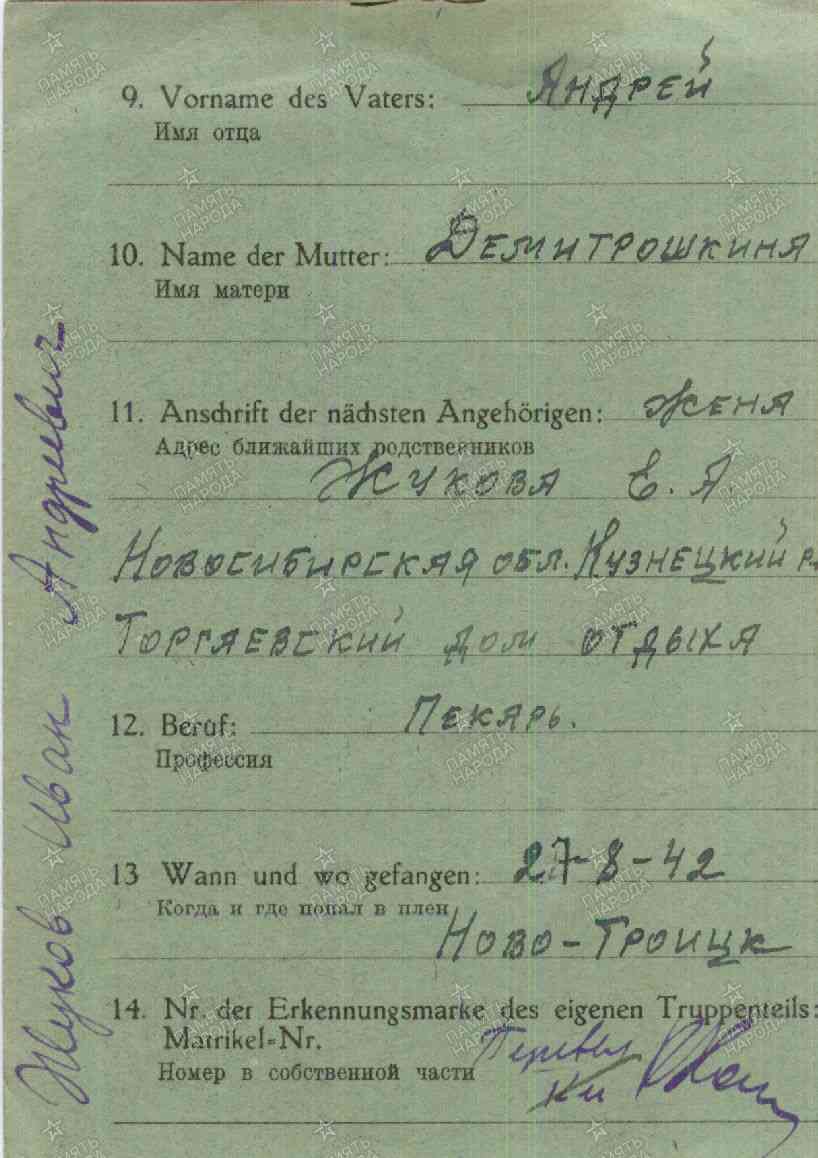 9. Vorname des Vaters: Андрей
Имя отца
10. Name der Mutter: Демитрошкина
Имя матери
11. Anschrift der nächsten Angehörigen: Жена
Адрес ближайших родственников
Жукова Е. А.
Новосибирская обл. Кузнецкий р
Торгаевский дом отдыха
12. Beruf: Пекарь.
Профессия
13 Wann und wo gefangen: 27-8-42
Когда и где попал в плен
Ново-Троицк
14. Nr. der Erkennungsmarke des eigenen Truppenteils:
Matrikel-Nr.
Номер в собственной части
Жуков Иван Андреевич
ПАМЯТЬ НАРОДА